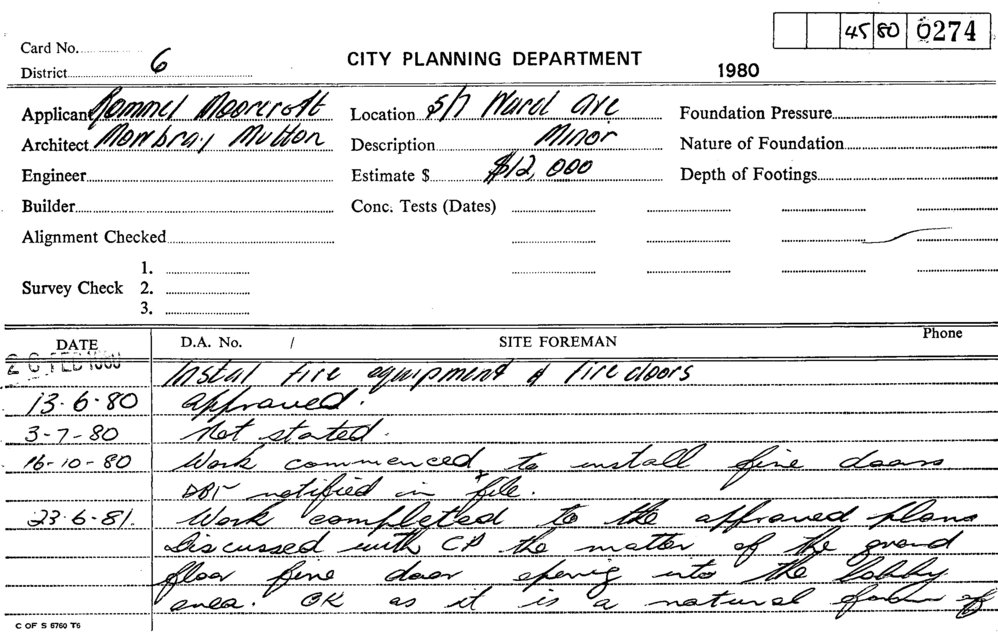 45 80 0274
Card No.
District 6
CITY PLANNING DEPARTMENT
1980
Applicant Rommel Moorcroft
Location 5/7 Ward Ave
Foundation Pressure
Architect Mowbray Mutton
Description Minor
Nature of Foundation
Engineer
Estimate $ $12,000
Depth of Footings
Builder
Conc. Tests (Dates)
Alignment Checked
1.
Survey Check 2.
3.
DATE D.A. No. / SITE FOREMAN Phone
26 FEB 1980 Instal fire equipment & fire doors
13-6-80 approved.
3-7-80 Not started.
16-10-80 Work commenced to install fire doors
notified in file.
23-6-81. Work completed to the approved plans
Discussed with CP the matter of the ground
floor fire door opening into the lobby
area. OK as it is a natural of
C OF S 6760 T6